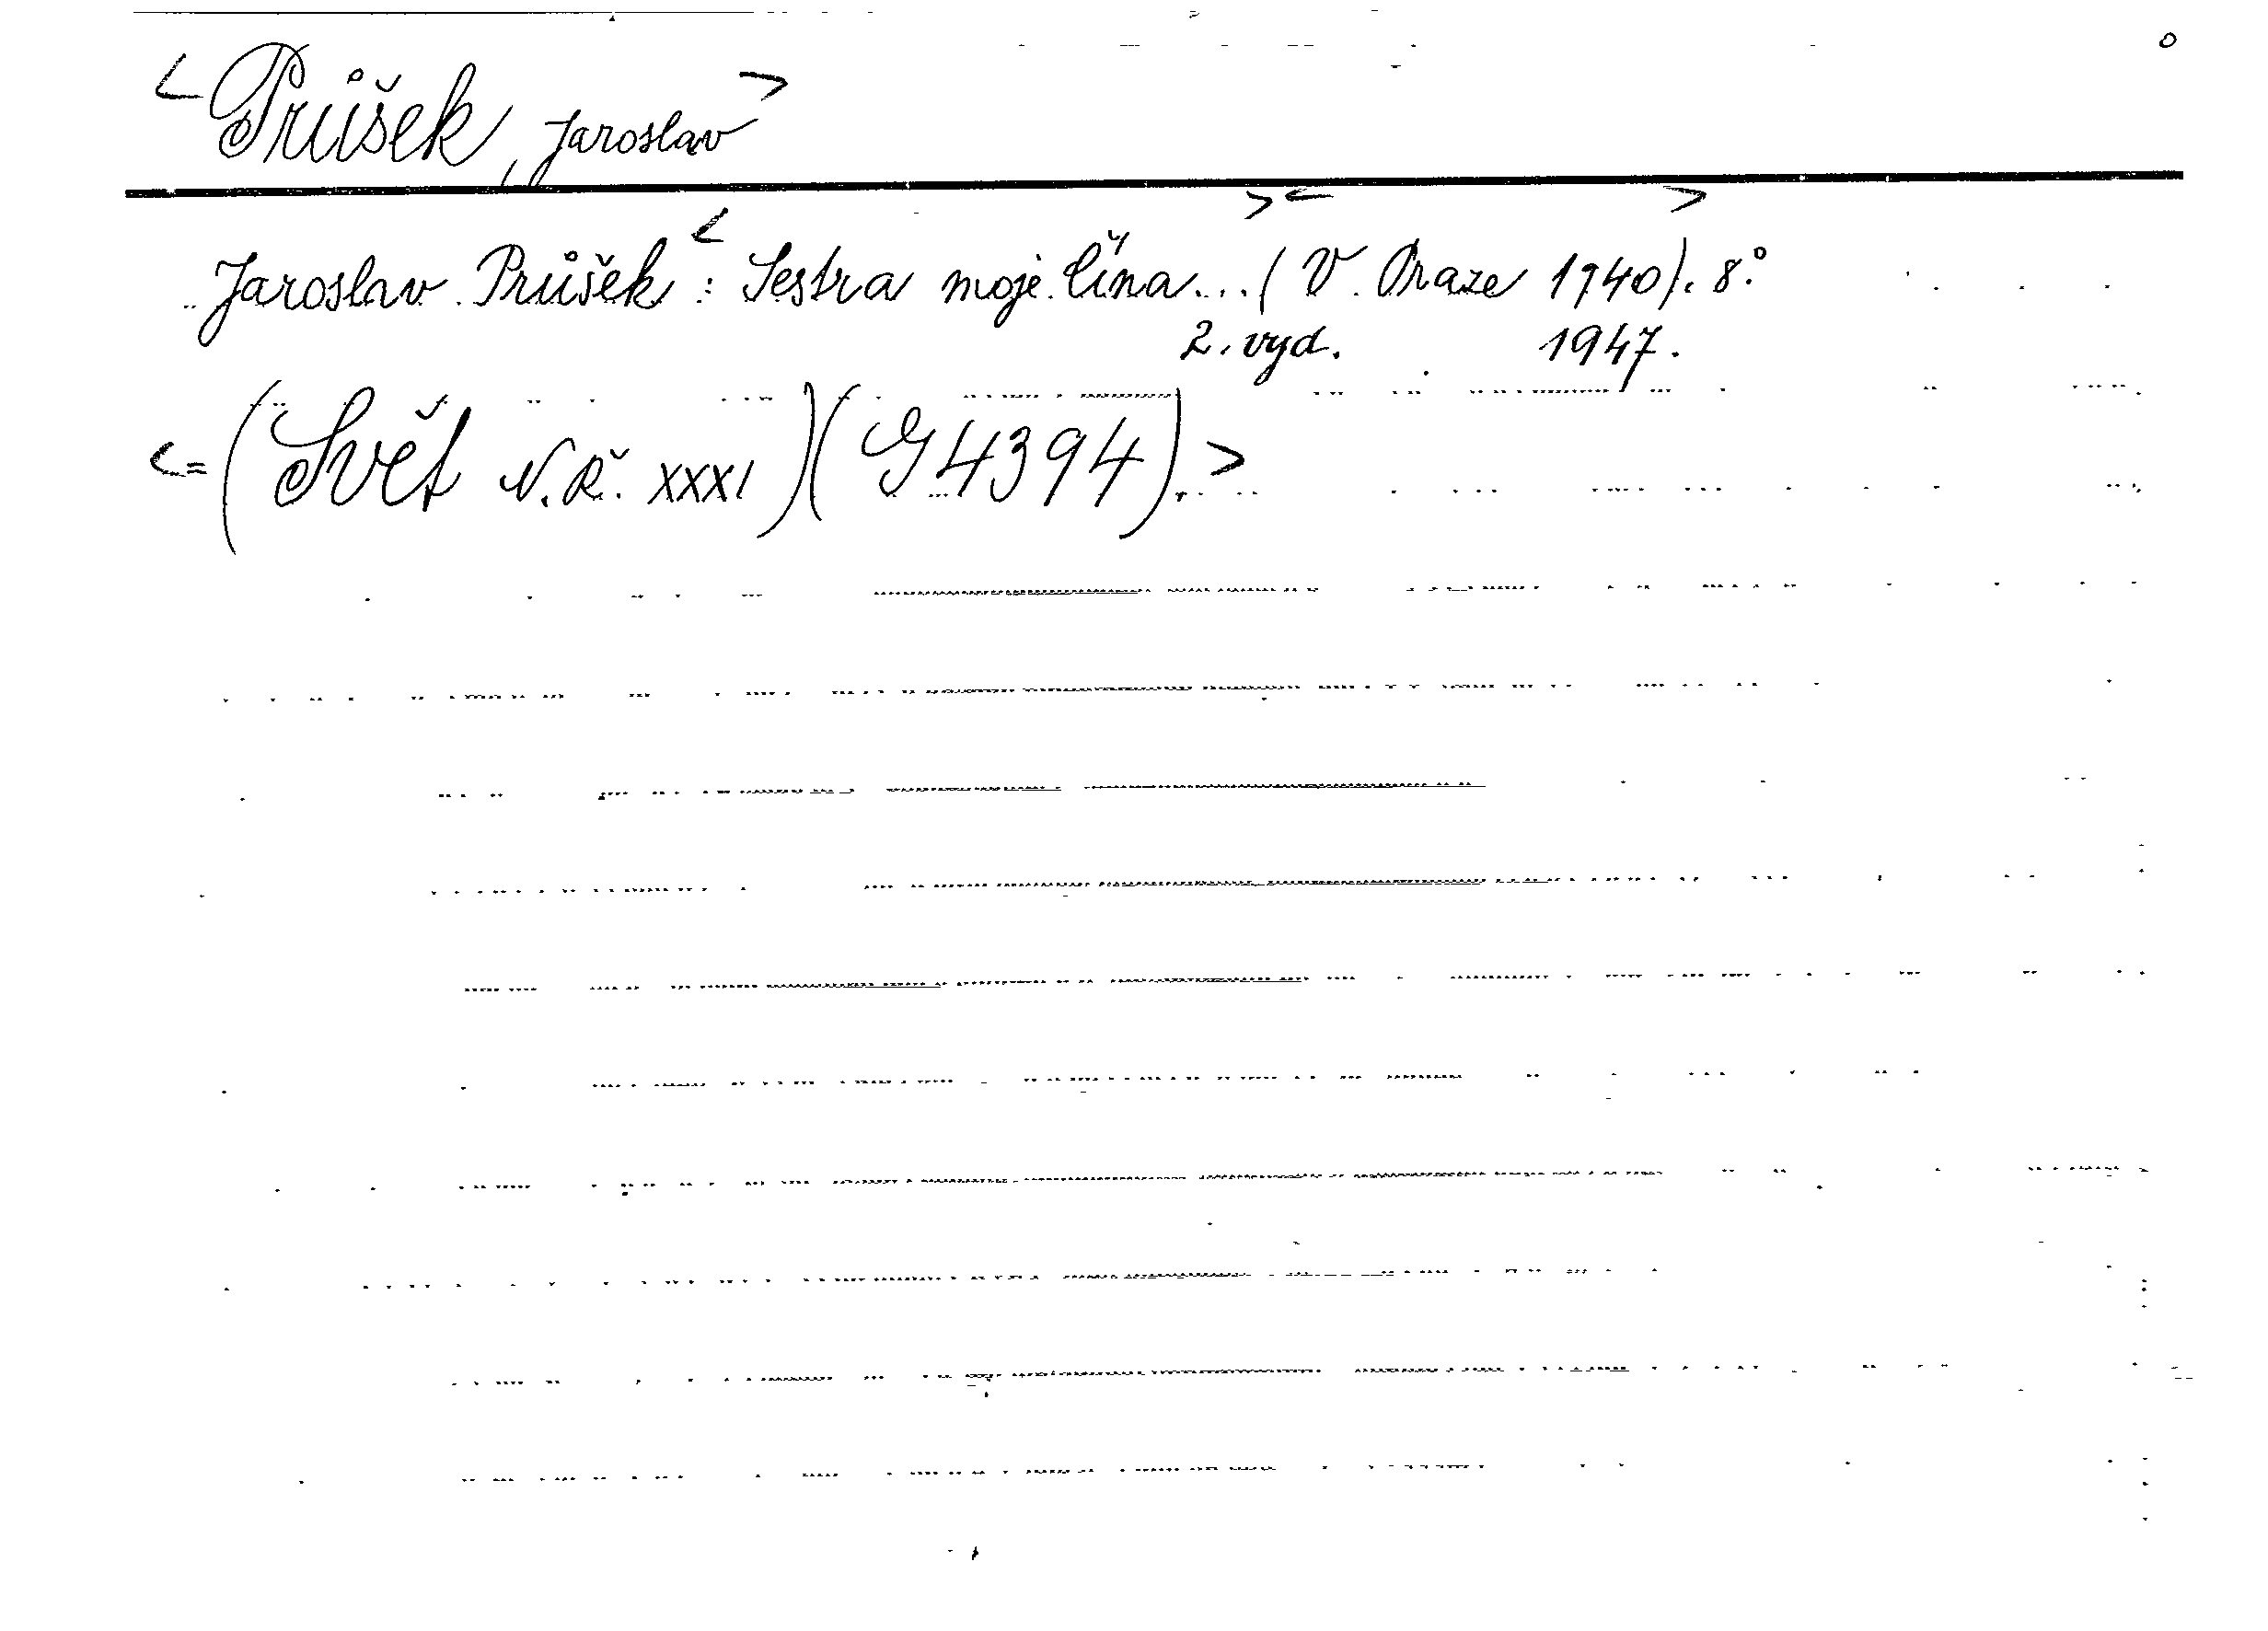 <Průšek, Jaroslav>
Jaroslav Průšek: <Sestra moje Čína...> <(V Praze 1940)>. 8°
2. vyd. 1947.
<=(Svět N. Ř. XXXI)(G 4394).>